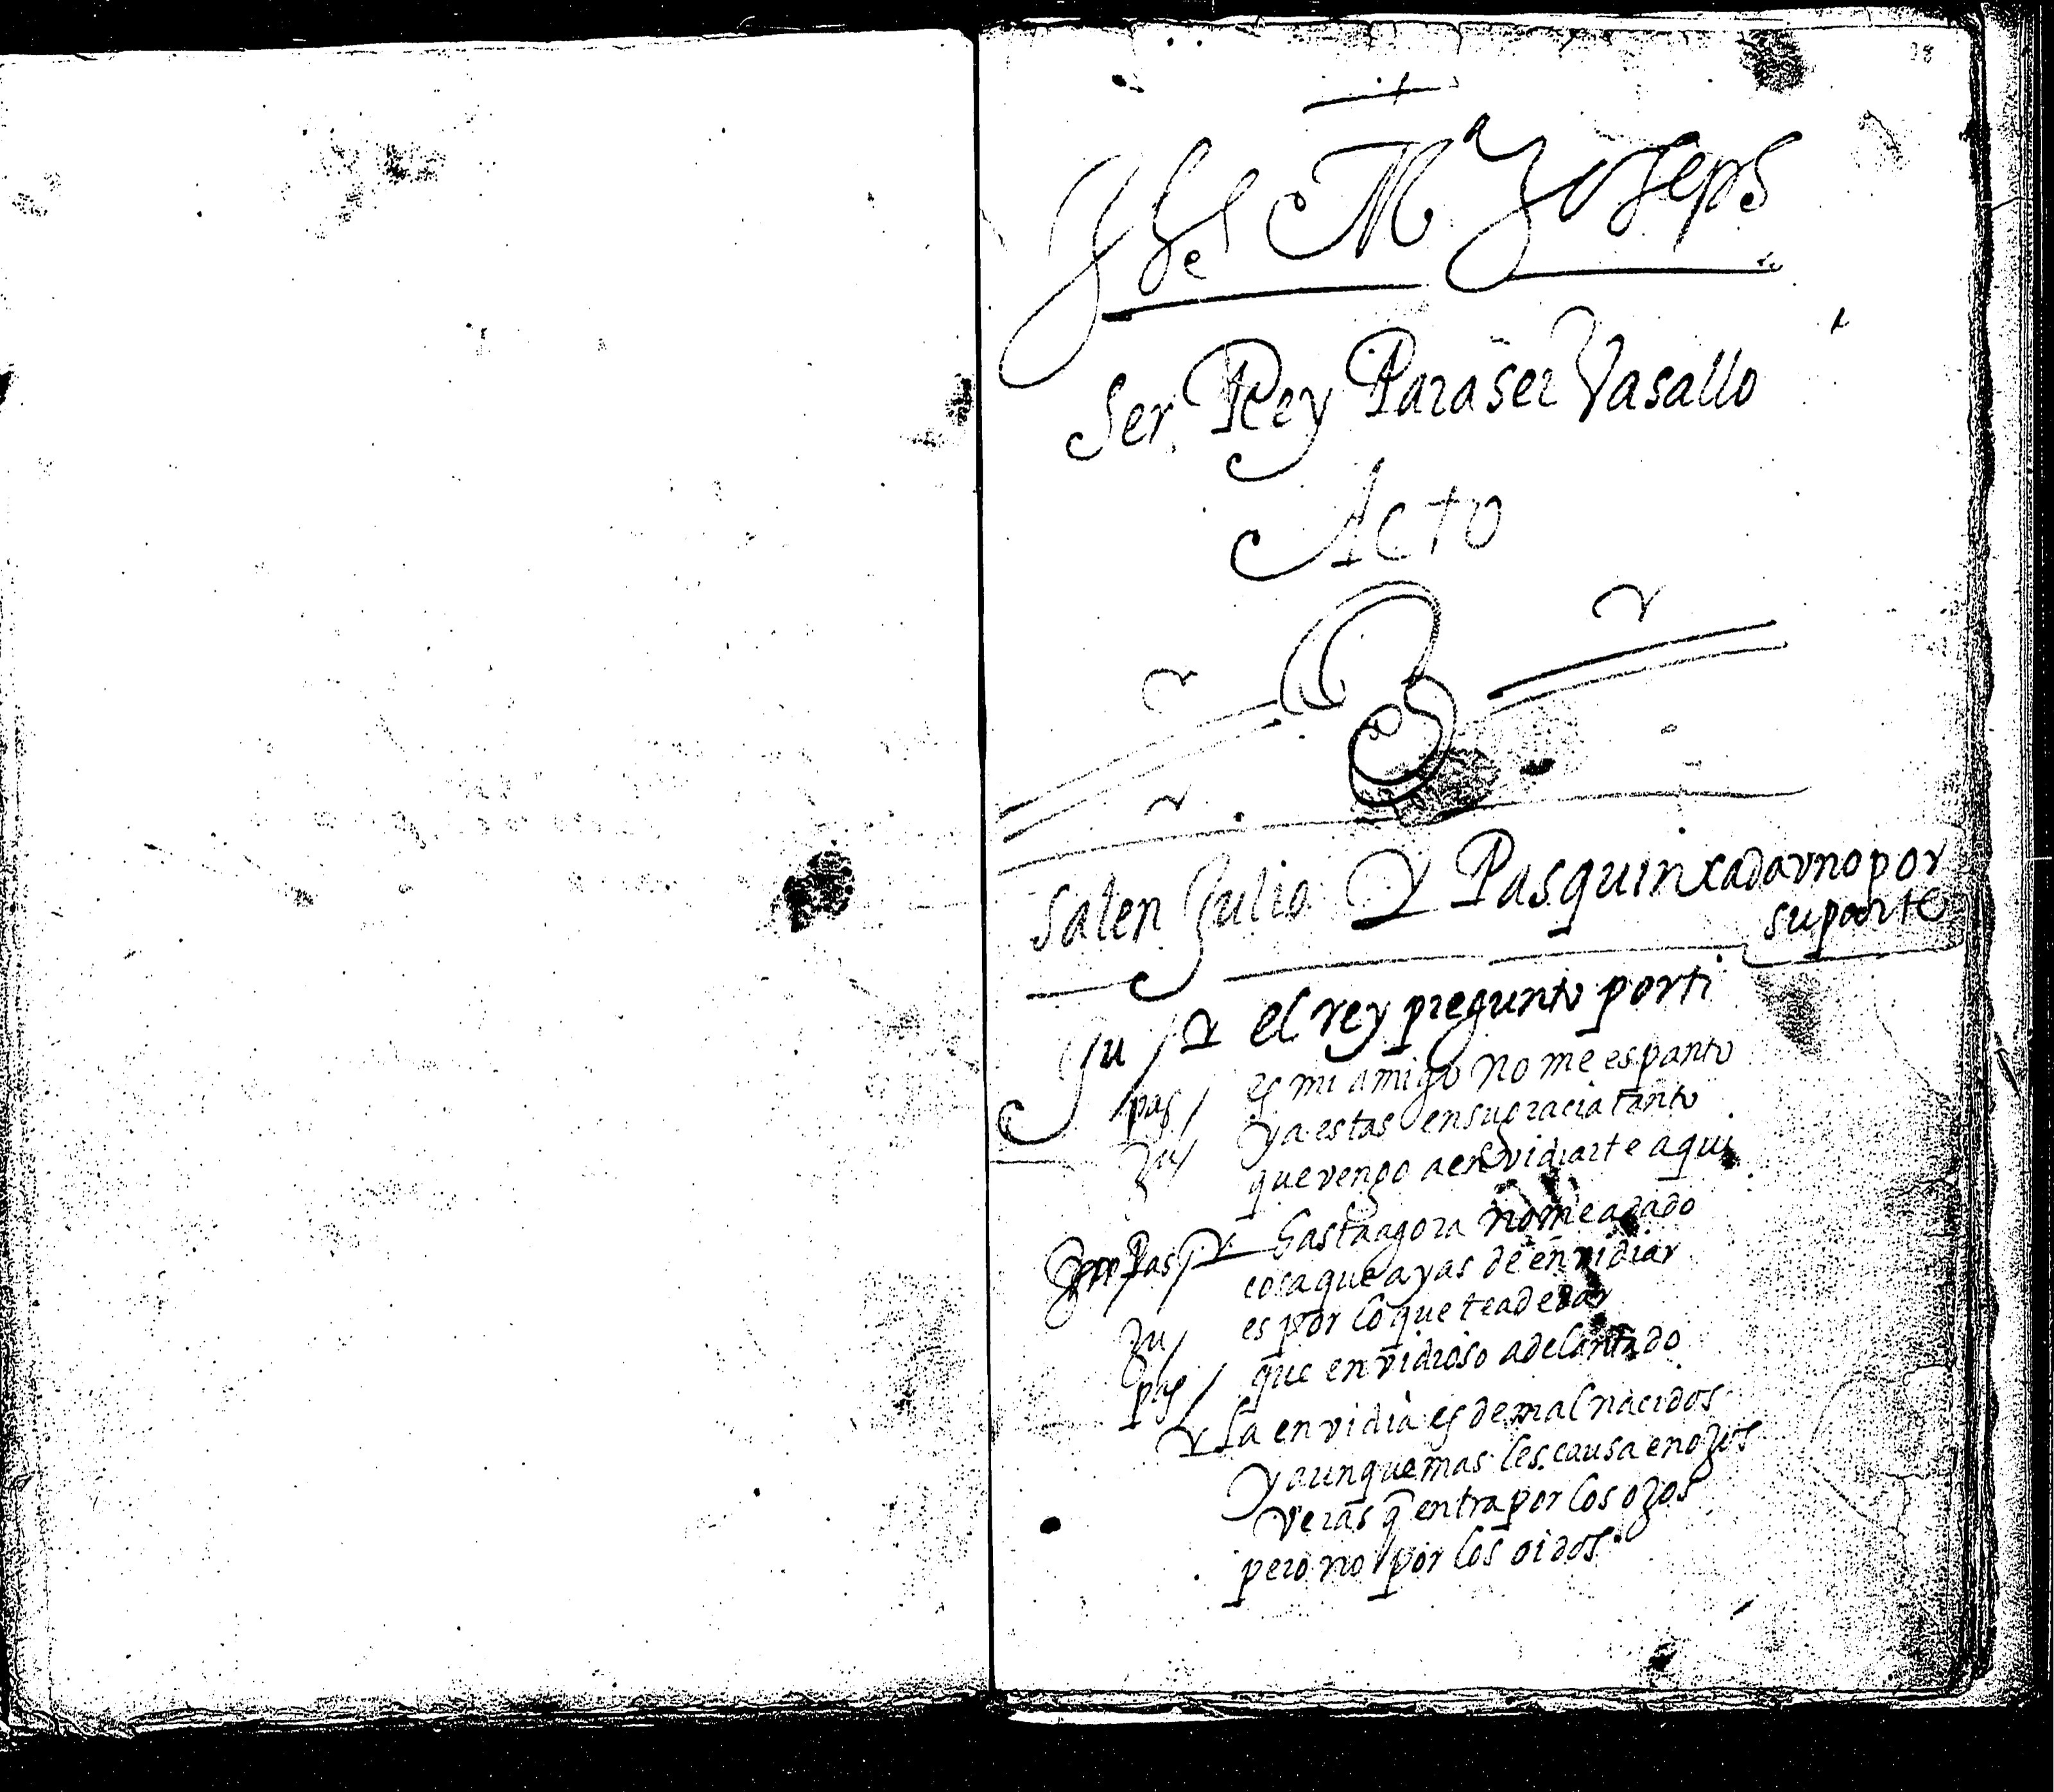 38
Jhs Mª Joseph
Ser Rey Para ser Vasallo
Acto
3
Salen Julio Y Pasquin cada vno por
su parte
Ju / el rey pregunto por ti
pas / es mi amigo no me espanto
Ju / ya estas en su gracia tanto
que vengo a envidiarte aqui
Pas / hasta agora no me a dado
cosa que ayas de envidiar
Ju / es por lo que te a de dar
pas / que envidioso adelantado
la envidia es de mal nacidos
y aunque mas les causa enojos
veras q̃ entra por los ojos
pero no por los oidos